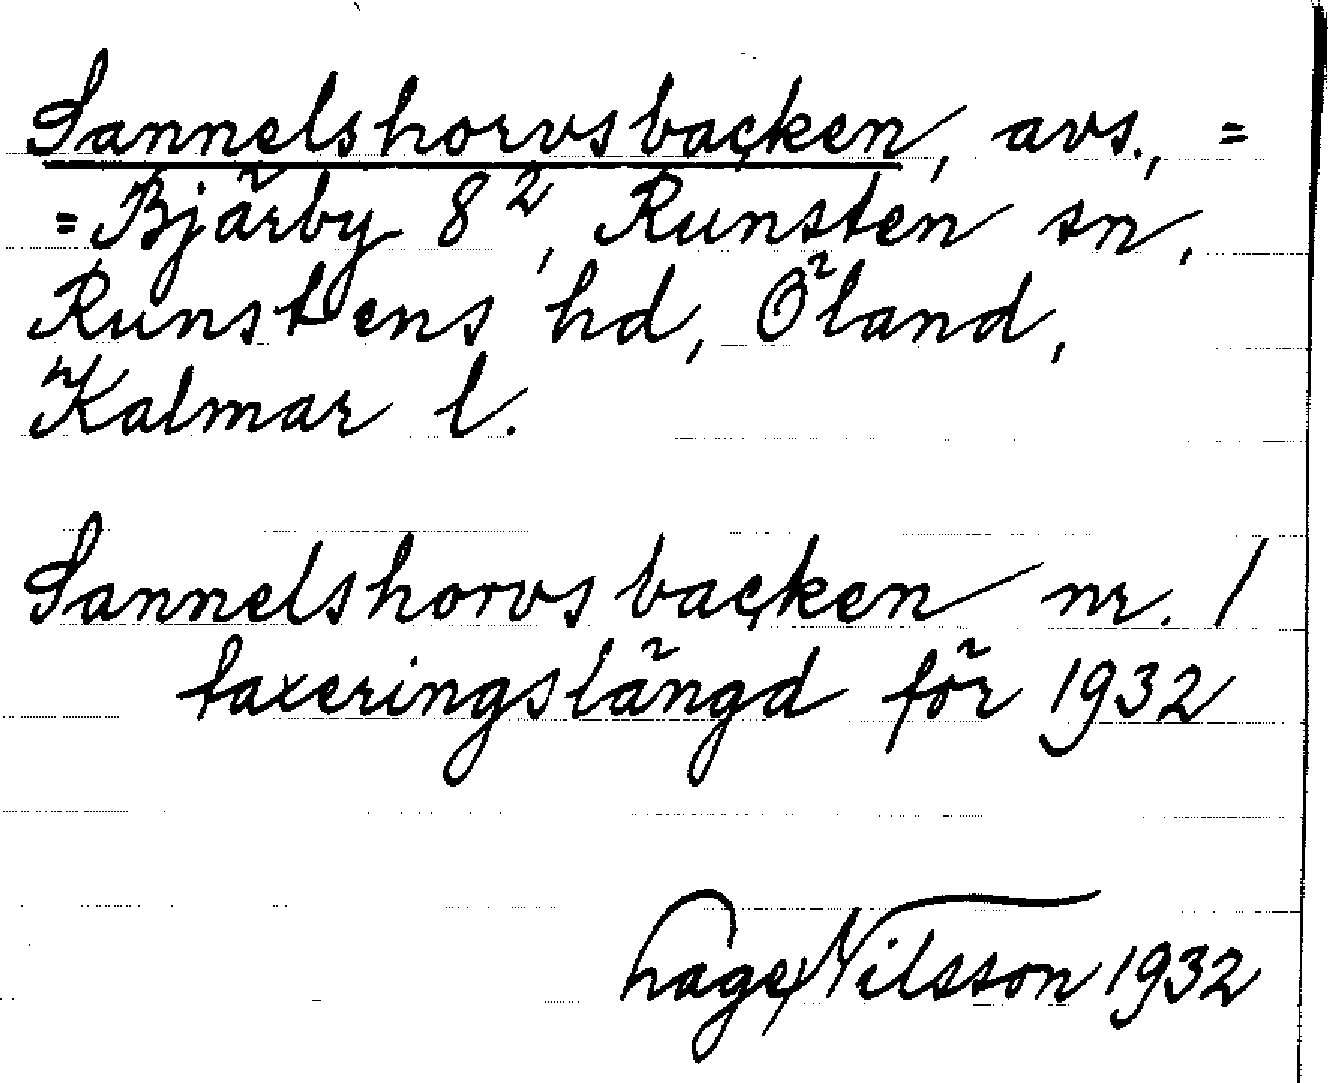 Sannelshorvsbacken, avs., =
= Bjärby 8², Runsten sn,
Runstens hd, Öland,
Kalmar l.
Sannelshorvsbacken nr. 1
taxeringslängd för 1932
Hage Nilsson 1932